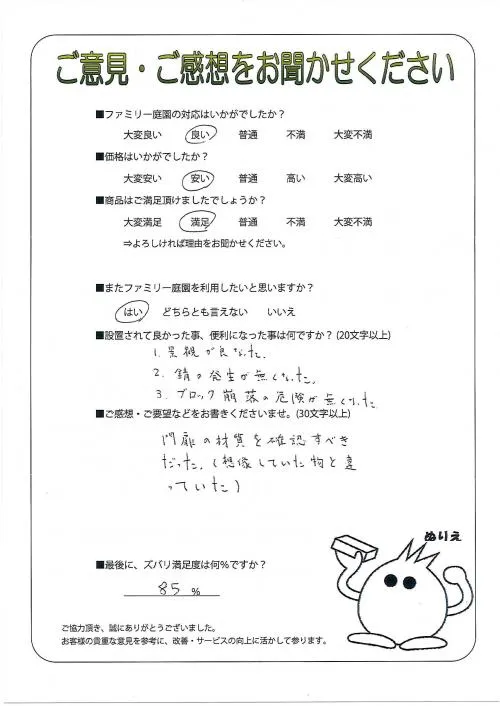 ご意見・ご感想をお聞かせください
■ファミリー庭園の対応はいかがでしたか？
大変良い 良い 普通 不満 大変不満
■価格はいかがでしたか？
大変安い 安い 普通 高い 大変高い
■商品はご満足頂けましたでしょうか？
大変満足 満足 普通 不満 大変不満
⇒よろしければ理由をお聞かせください。
■またファミリー庭園を利用したいと思いますか？
はい どちらとも言えない いいえ
■設置されて良かった事、便利になった事は何ですか？(20文字以上)
1. 景観が良くなった.
2. 錆の発生が無くなった.
3. ブロック崩落の危険が無くなった
■ご感想・ご要望などをお書きくださいませ。(30文字以上)
門扉の材質を確認すべき
だった.（想像していた物と違
っていた）
ぬりえ
■最後に、ズバリ満足度は何％ですか？
85 %
ご協力頂き、誠にありがとうございました。
お客様の貴重な意見を参考に、改善・サービスの向上に活かして参ります。